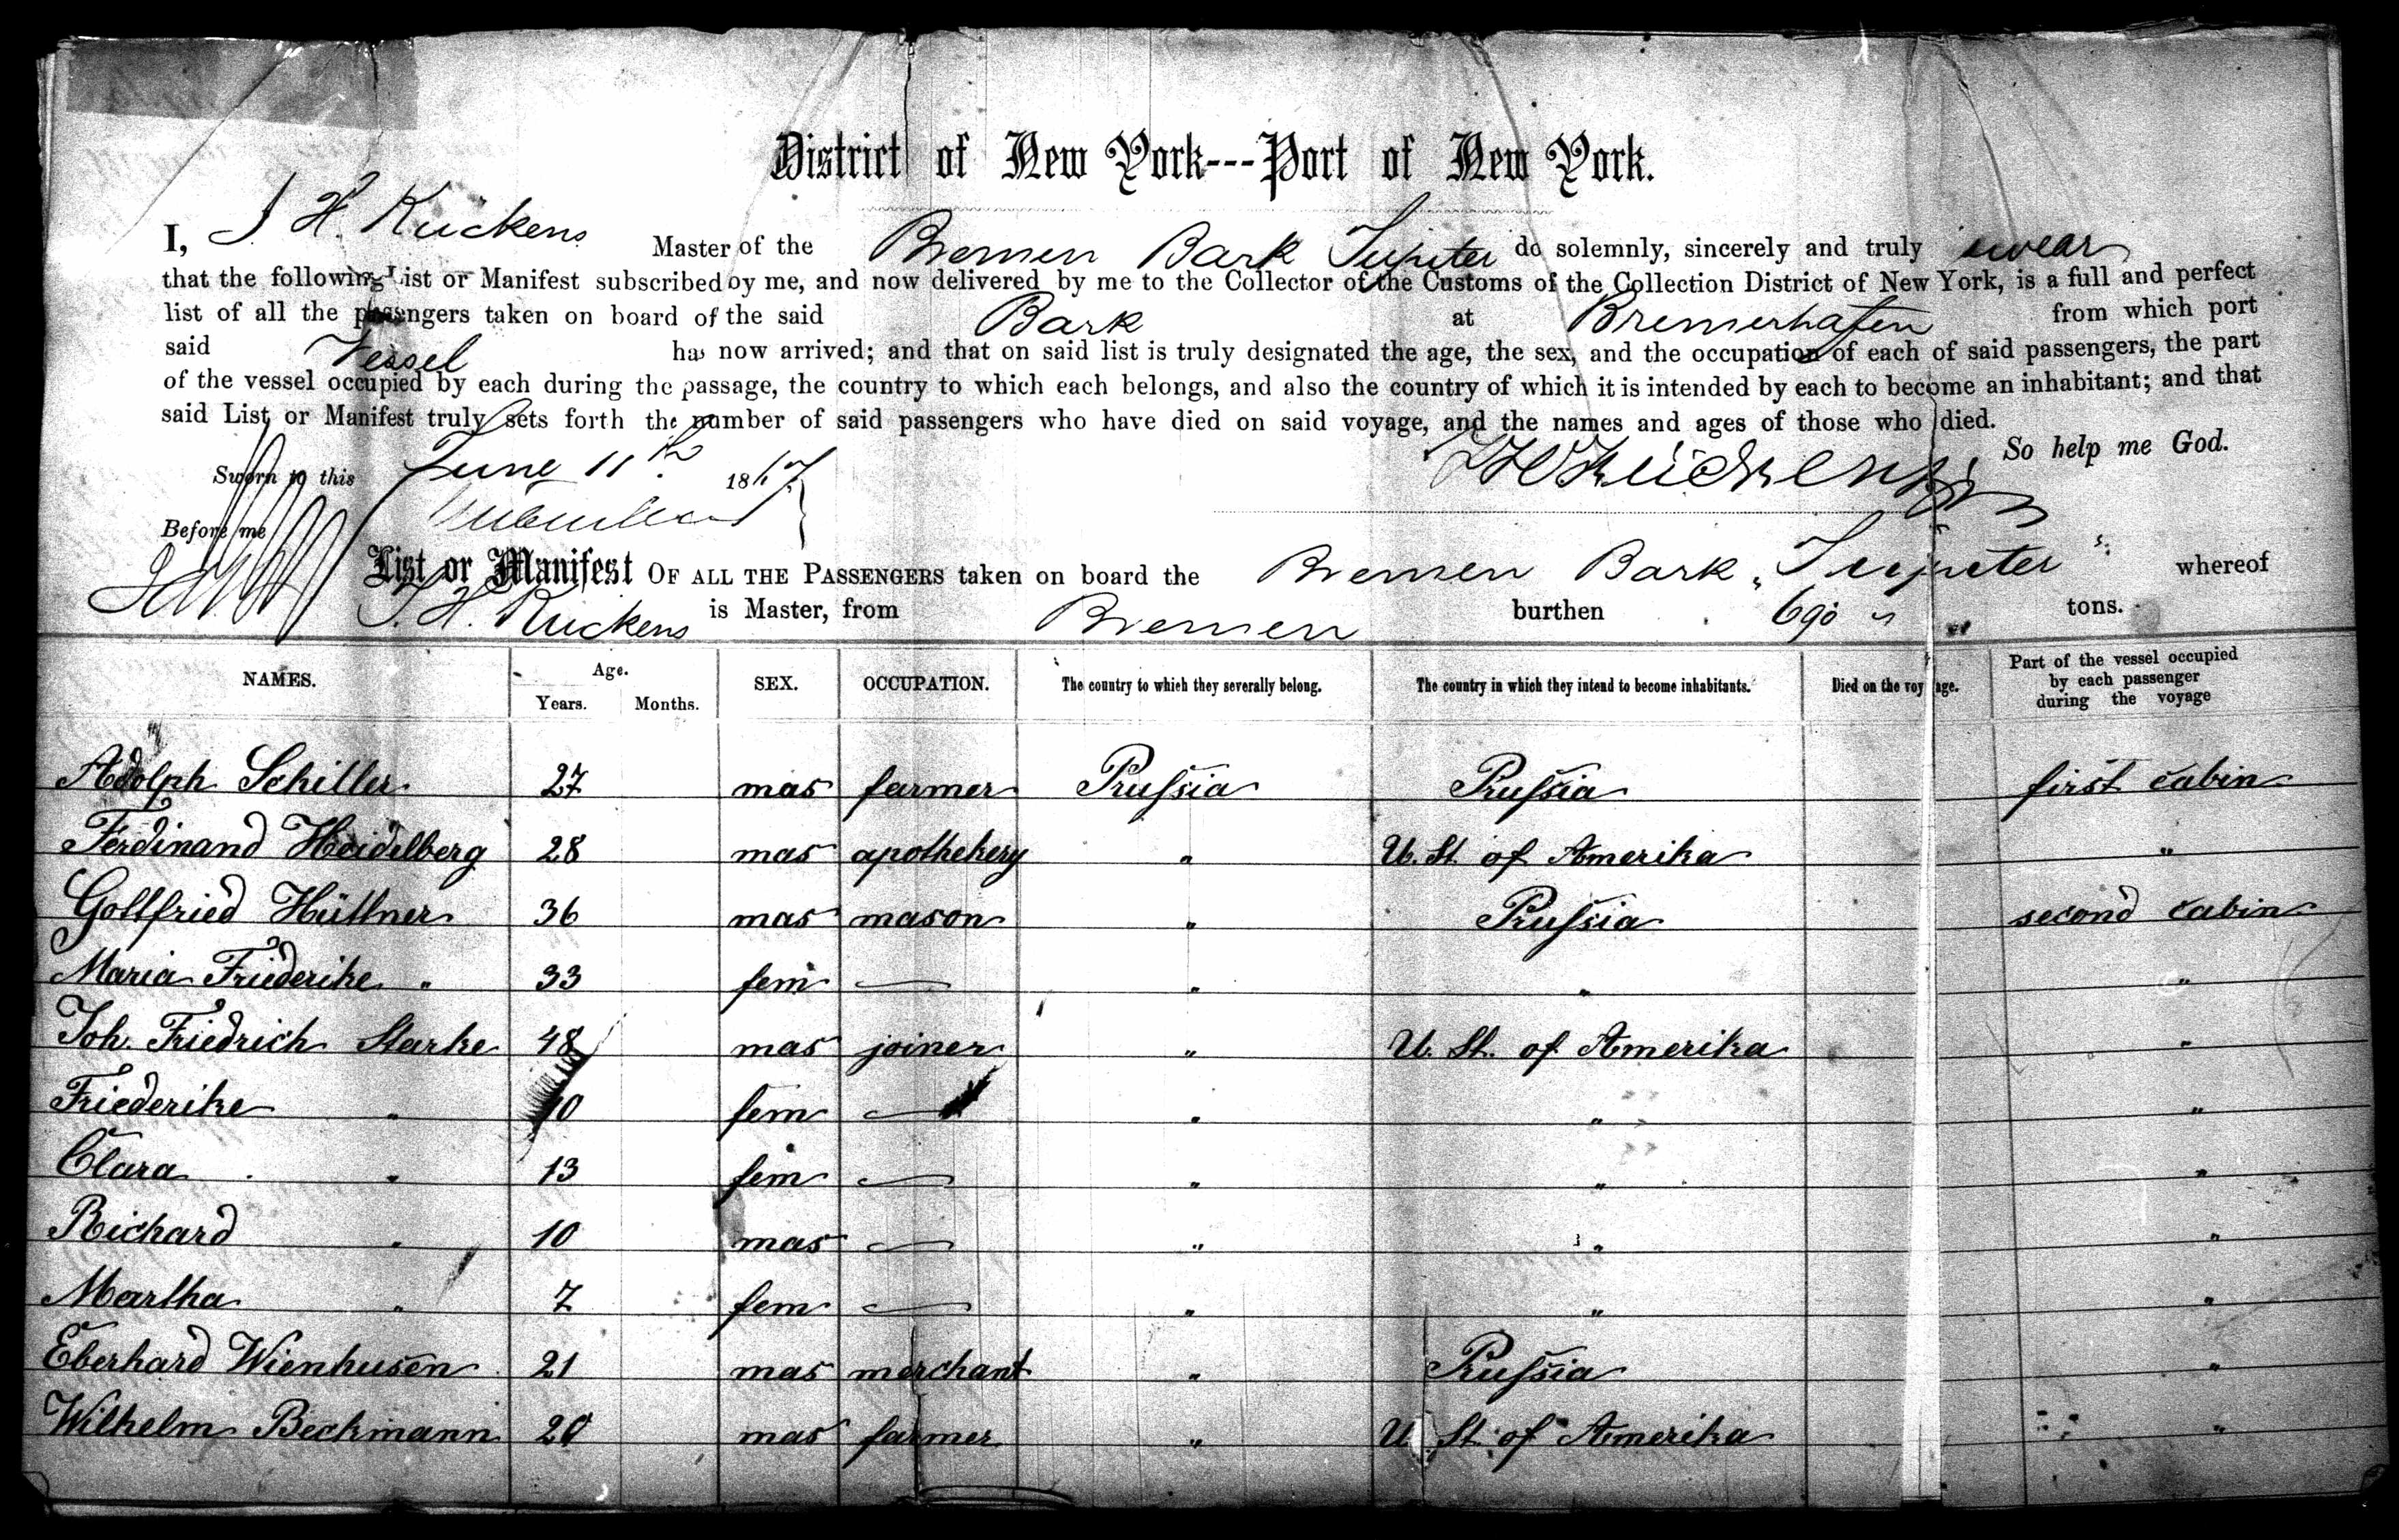 District of New York---Port of New York.
I, J H. Kückens Master of the Bremen Bark Jupiter do solemnly, sincerely and truly swear
that the following List or Manifest subscribed by me, and now delivered by me to the Collector of the Customs of the Collection District of New York, is a full and perfect
list of all the passengers taken on board of the said Bark at Bremerhafen from which port
said Vessel has now arrived; and that on said list is truly designated the age, the sex, and the occupation of each of said passengers, the part
of the vessel occupied by each during the passage, the country to which each belongs, and also the country of which it is intended by each to become an inhabitant; and that
said List or Manifest truly sets forth the number of said passengers who have died on said voyage, and the names and ages of those who died.
So help me God.
Sworn to this June 11th 1867 JHKückens
Before me
List or Manifest OF ALL THE PASSENGERS taken on board the Bremen Bark „Jupiter" whereof
J. H. Kückens is Master, from Bremen burthen 690 tons.
NAMES. Age. Years. Months. SEX. OCCUPATION. The country to which they severally belong. The country in which they intend to become inhabitants. Died on the voyage. Part of the vessel occupied by each passenger during the voyage
Adolph Schiller 27 mas farmer Prussia Prussia first cabin
Ferdinand Heidelberg 28 mas apothekery " U. St. of Amerika "
Gottfried Hüttner 36 mas mason " Prussia second cabin
Maria Friederike " 33 fem — " " "
Joh. Friedrich Starke 48 mas joiner " U. St. of Amerika "
Friederike " 40 fem — " " "
Clara " 13 fem — " " "
Richard " 10 mas — " " "
Martha " 7 fem — " " "
Eberhard Wienhusen 21 mas merchant " Prussia "
Wilhelm Beckmann mas farmer " U. St. of Amerika "